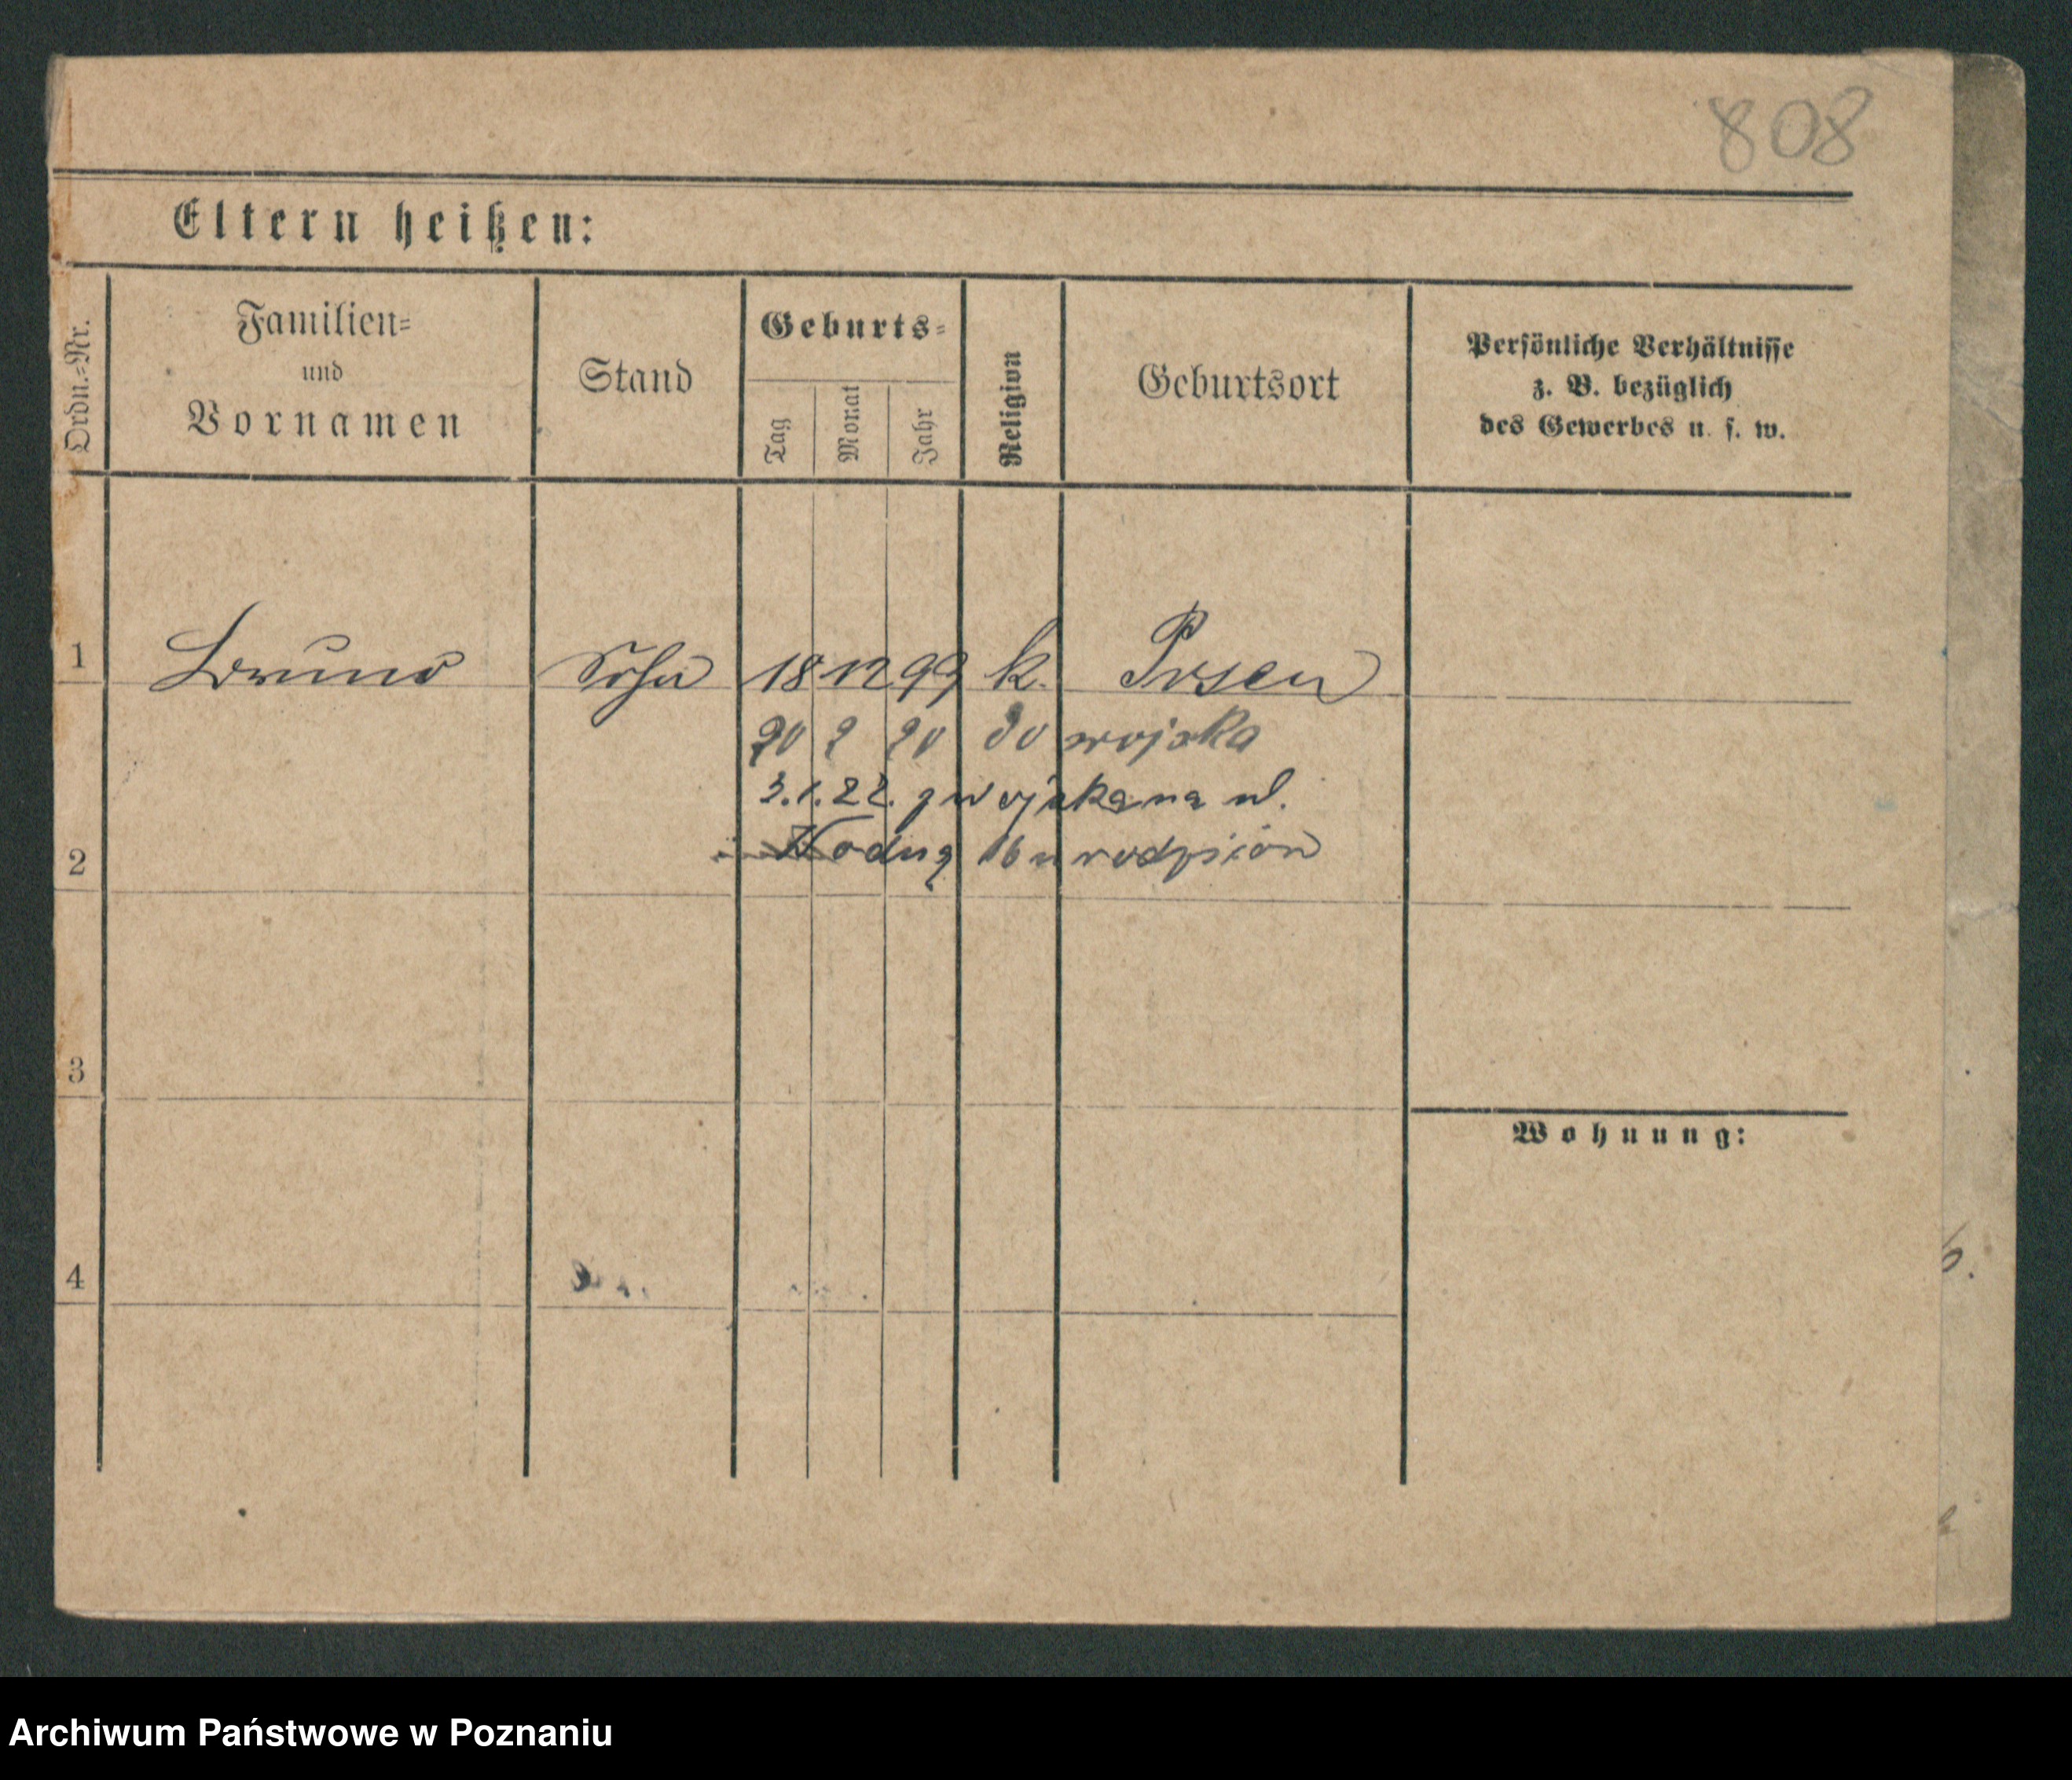 808
Eltern heißen:
Ordn.-Nr.
Familien-
und
Vornamen
Stand
Geburts-
Tag
Monat
Jahr
Religion
Geburtsort
Persönliche Verhältnisse
z. B. bezüglich
des Gewerbes u. s. w.
1 Bruno Sohn 18 12 99 k. Posen
20 2 20 do wojska
3.1.22. z wojska na ul.
2 Wodną 16 u rodziców
3
Wohnung:
4
Archiwum Państwowe w Poznaniu